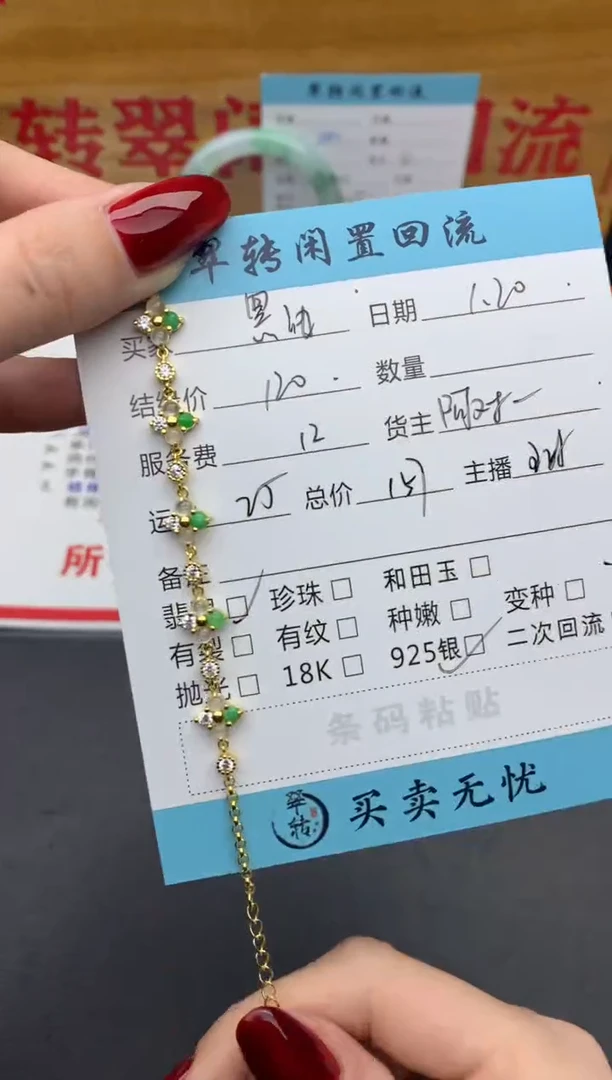 转翠闲 回流
翠转闲置回流
翠转闲置回流
买家 日期 1.20
结缘价 120 数量
服务费 12 货主
运 25 总价 157 主播
备注
翡翠 珍珠 和田玉
有裂 有纹 种嫩 变种
抛光 18K 925银 二次回流
条码粘贴
翠转 买卖无忧
所